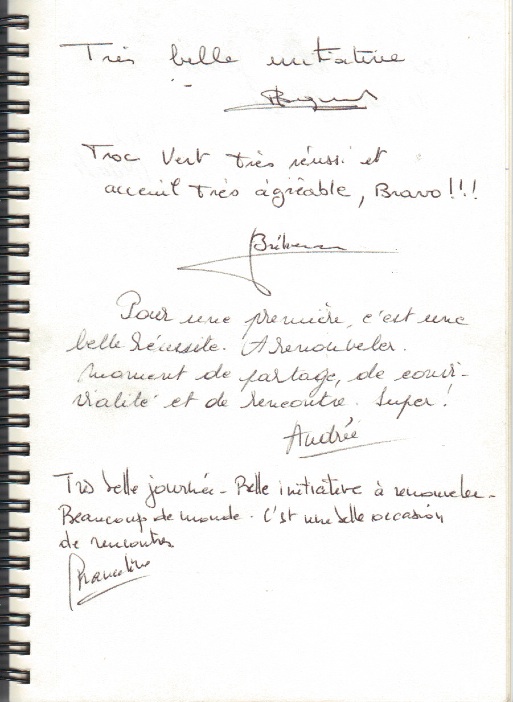 Très belle initiative
Troc Vert très réussi et
acceuil très agrèable, Bravo!!!
Pour une première, c'est une
belle réussite. A renouveler.
Moment de partage, de convi-
vialité et de rencontre. Super!
Andrée
Très belle journée - Belle initiative à renouveler -
Beaucoup de monde. C'est une belle occasion
de rencontres
Francoline